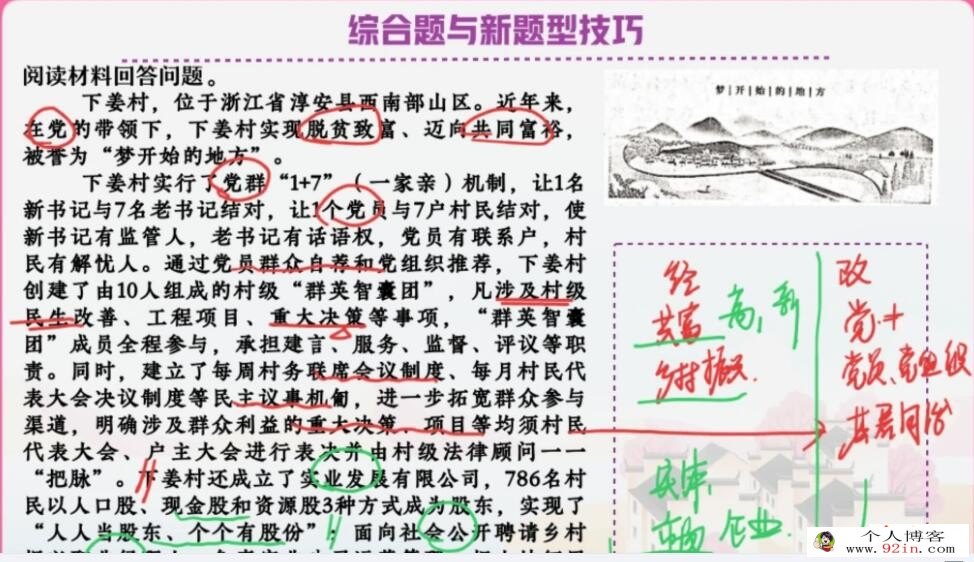 综合题与新题型技巧
阅读材料回答问题。
下姜村，位于浙江省淳安县西南部山区。近年来，
在党的带领下，下姜村实现脱贫致富、迈向共同富裕，
被誉为“梦开始的地方”。
下姜村实行了党群“1+7”（一家亲）机制，让1名
新书记与7名老书记结对，让1个党员与7户村民结对，使
新书记有监管人，老书记有话语权，党员有联系户，村
民有解忧人。通过党员群众自荐和党组织推荐，下姜村
创建了由10人组成的村级“群英智囊团”，凡涉及村级
民生改善、工程项目、重大决策等事项，“群英智囊
团”成员全程参与，承担建言、服务、监督、评议等职
责。同时，建立了每周村务联席会议制度、每月村民代
表大会决议制度等民主议事机制，进一步拓宽群众参与
渠道，明确涉及群众利益的重大决策、项目等均须村民
代表大会、户主大会进行表决并由村级法律顾问一一
“把脉”。下姜村还成立了实业发展有限公司，786名村
民以人口股、现金股和资源股3种方式成为股东，实现了
“人人当股东、个个有股份”；面向社会公开聘请乡村
梦|开|始|的|地|方
经
共富 高，新
乡村振兴.
政
党+
党员、党组织
基层同治
实体
企业
个人博客
www.92in.com